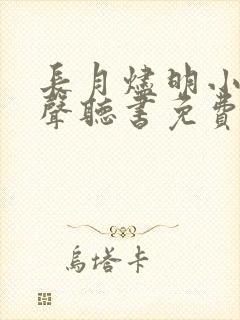 長月燼明小
聲聽書免費
烏塔卡